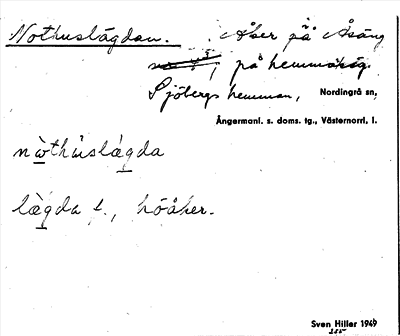 Nothuslägdan. Åker på Åsäng
på hemmäsig.
Sjöbergs hemman, Nordingrå sn,
Ångermanl. s. doms. tg., Västernorrl. l.
nòthùslägda
lägda f., höåker.
Sven Hiller 1949